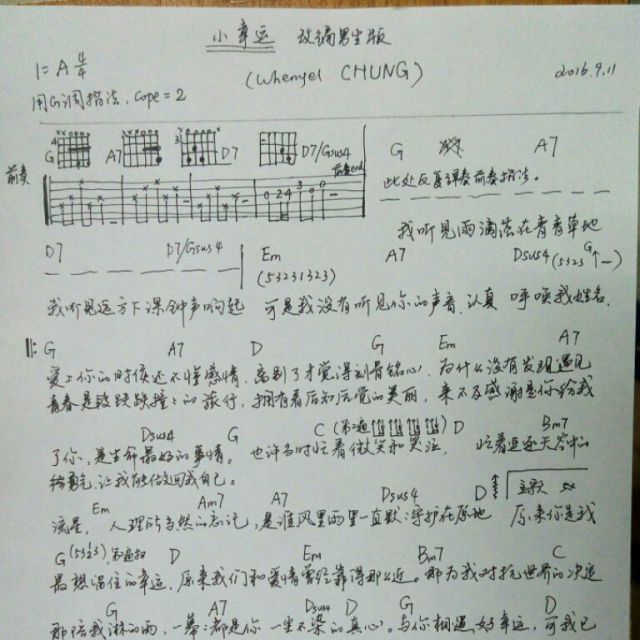 小幸运 改编男生版
(Whenyel CHUNG)
2016.9.11
1=A 4/4
用G调指法, Cope=2
G A7 D7 D7/Gsus4
前奏end
前奏
0 2 4 3 0 0
G A7
此处反复弹奏前奏指法。
我听见雨滴落在青青草地
D7 D7/Gsus4 Em A7 Dsus4 (5323 G↑—)
(53231323)
我听见远方下课钟声响起 可是我没有听见你的声音,认真 呼唤我姓名.
G A7 D G Em A7
爱上你的时候还不懂感情,离别了才觉得刻骨铭心,为什么没有发现遇见
青春是段跌跌撞撞的旅行,拥有着后知后觉的美丽,来不及感谢是你给我
Dsus4 G C (第2遍 D Bm7
了你,是生命最好的事情。也许当时忙着微笑和哭泣, 忙着追逐天空中的
给勇气,让我能做回我自己。
Em Am7 A7 Dsus4 D 副歌
流星, 人理所当然的忘记,是谁风里雨里一直默默守护在原地 原来你是我
G(5323), D Em Bm7 C
最想留住的幸运,原来我们和爱情曾经靠得那么近。那为我对抗世界的决定
G A7 Dsus4 D G D
那陪我淋的雨,一幕幕都是你 一尘不染的真心。与你相遇 好幸运,可我已